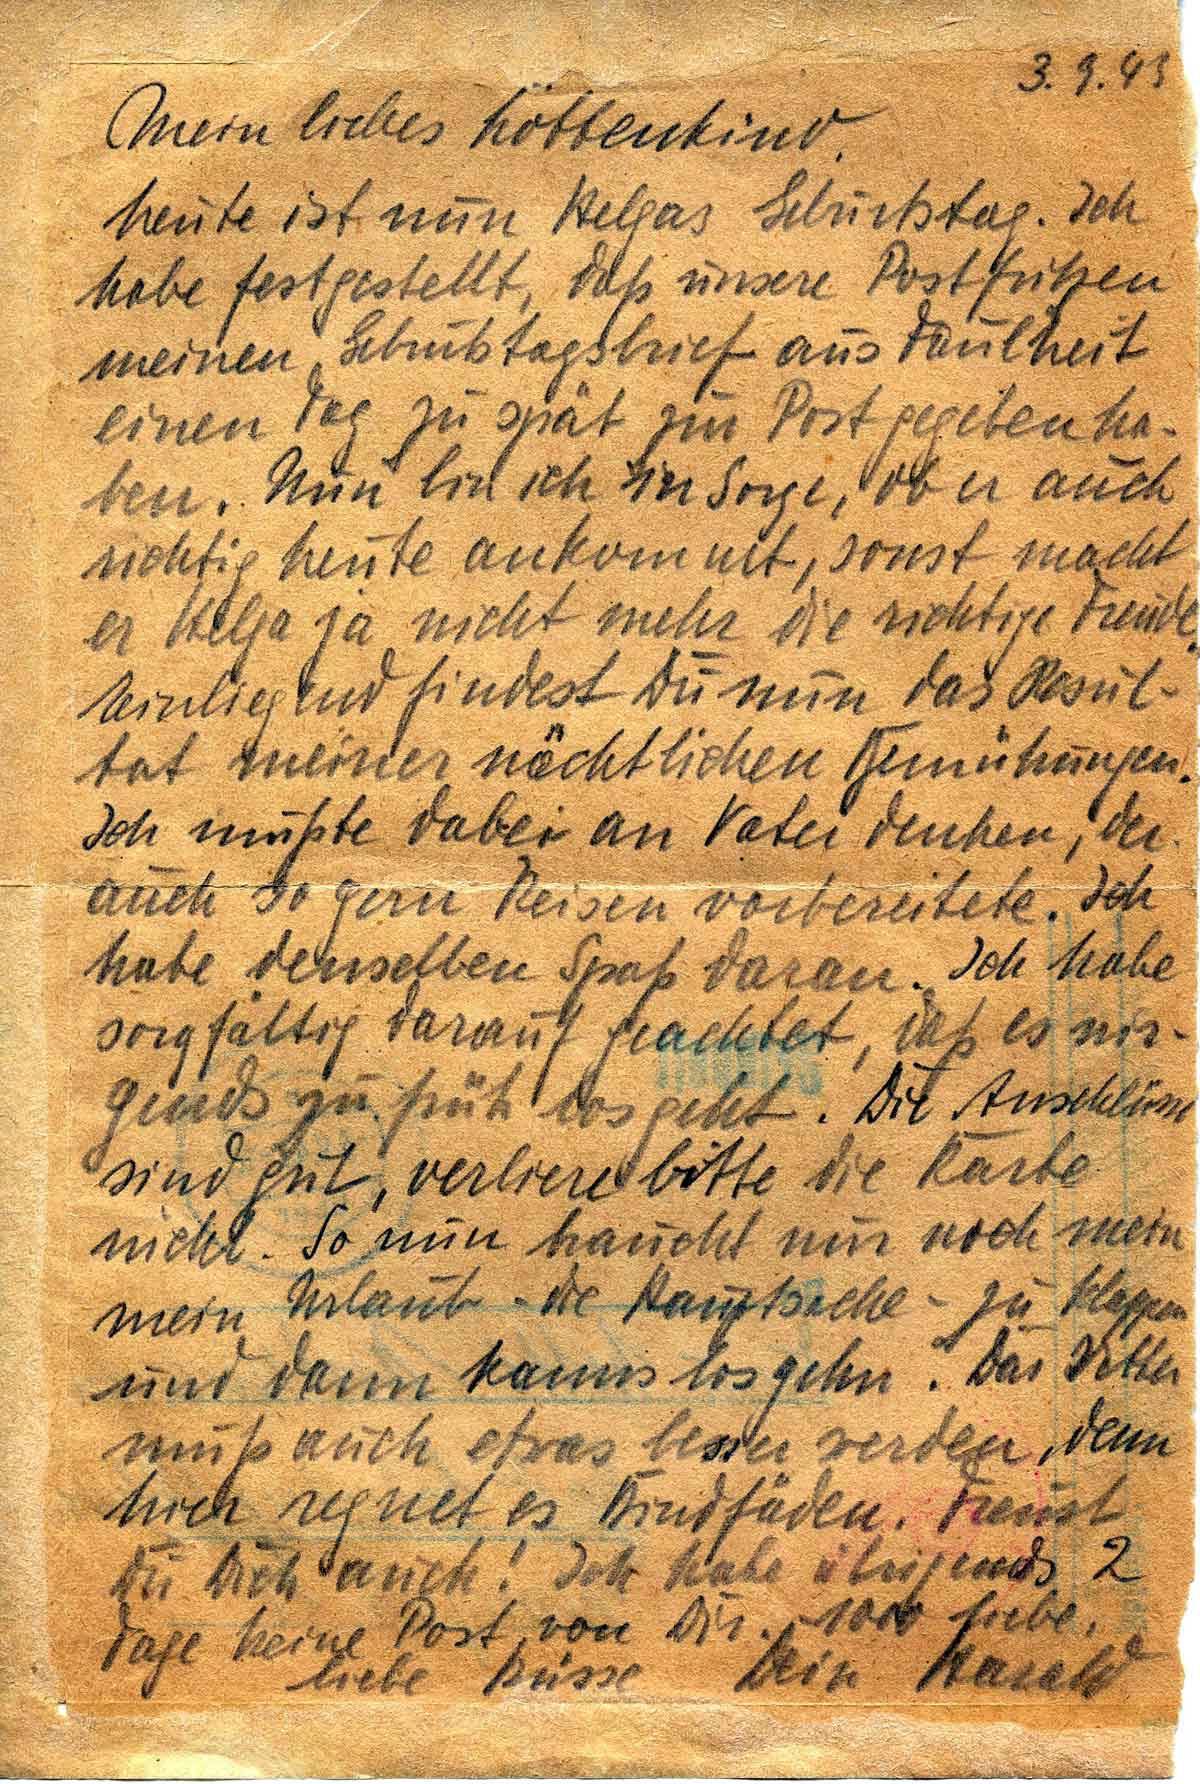 3.9.43
Mein liebes Köttenkind.
heute ist nun Helgas Geburtstag. Ich
habe festgestellt, daß unsere Postfritzen
meinen Geburtstagsbrief aus Faulheit
einen Tag zu spät zur Post gegeben ha-
ben. Nun bin ich in Sorge, ob er auch
richtig heute ankommt, sonst macht
er Helga ja nicht mehr die richtige Freude.
Einliegend findest Du nun das Resul-
tat meiner nächtlichen Bemühungen.
Ich mußte dabei an Vater denken, der
auch so gern Reisen vorbereitete. Ich
habe denselben Spaß daran. Ich habe
sorgfältig darauf geachtet, daß es nir-
gends zu früh losgeht. Die Anschlüsse
sind gut, verliere bitte die Karte
nicht. So nun braucht nur noch mein
mein Urlaub - die Hauptsache - zu klappen
und dann kanns losgehn. Das Wetter
muß auch etwas besser werden, denn
hier regnet es Bindfäden. Freust
Du Dich auch! Ich habe übrigends 2
Tage keine Post von Dir. - 1000 liebe,
liebe Küsse Dein Harald